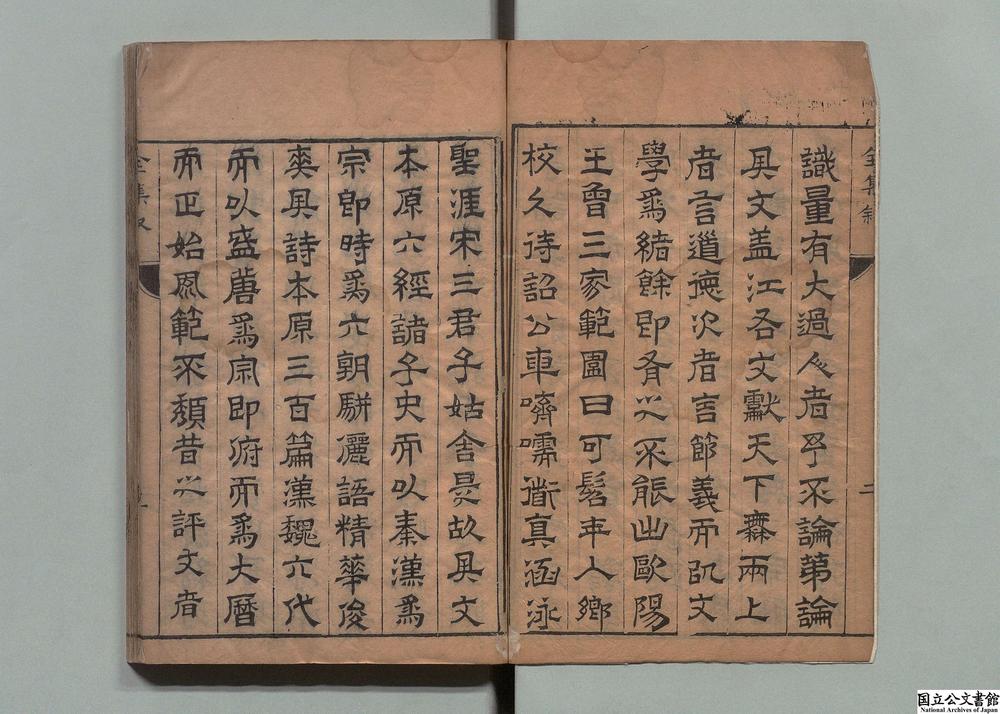 全集叙
二
識量有大過人者乎不論第論
其文蓋江右文獻天下無兩上
者言道德次者言節義而文
學爲緒餘即有之不能出歐陽
王曾三家範圍曰可髫年入鄉
校久待詔公車嚌嚅道真涵泳
聖涯宋三君子姑舍是故其文
本原六經諸子史而以秦漢爲
宗即時爲六朝駢儷語精華俊
爽其詩本原三百篇漢魏六代
而以盛唐爲宗即俯而爲大曆
而正始風範不頹昔之評文者
全集
国立公文書館
National Archives of Japan